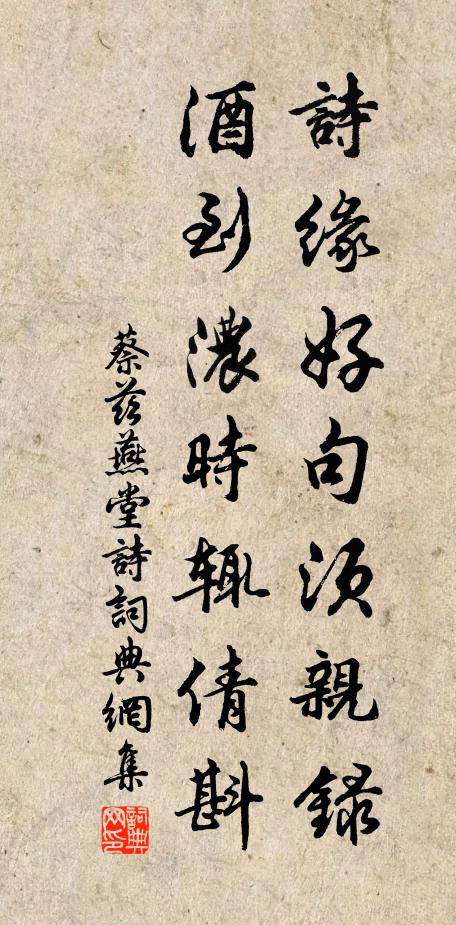 詩緣好句須親錄
酒到濃時輒倩斟
蔡茲燕堂詩詞典網集
詞典網印